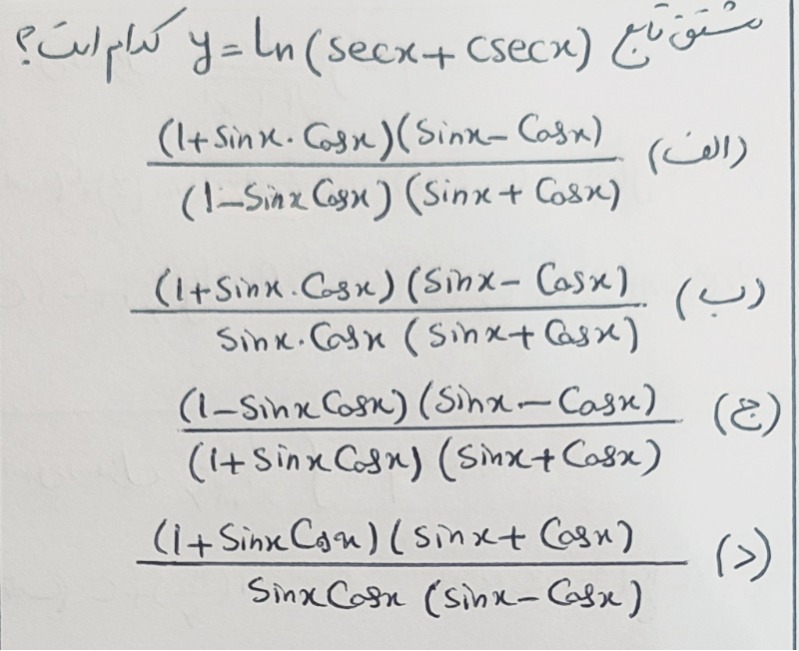 مشتق تابع y = Ln (secx + csecx) کدام است؟
الف) (1+Sinx.Cosx)(Sinx-Cosx) / (1-Sinx Cosx)(Sinx+Cosx)
ب) (1+Sinx.Cosx)(Sinx-Cosx) / Sinx.Cosx (Sinx+Cosx)
ج) (1-Sinx Cosx)(Sinx-Cosx) / (1+Sinx Cosx)(Sinx+Cosx)
د) (1+Sinx Cosx)(Sinx+Cosx) / Sinx Cosx (Sinx-Cosx)